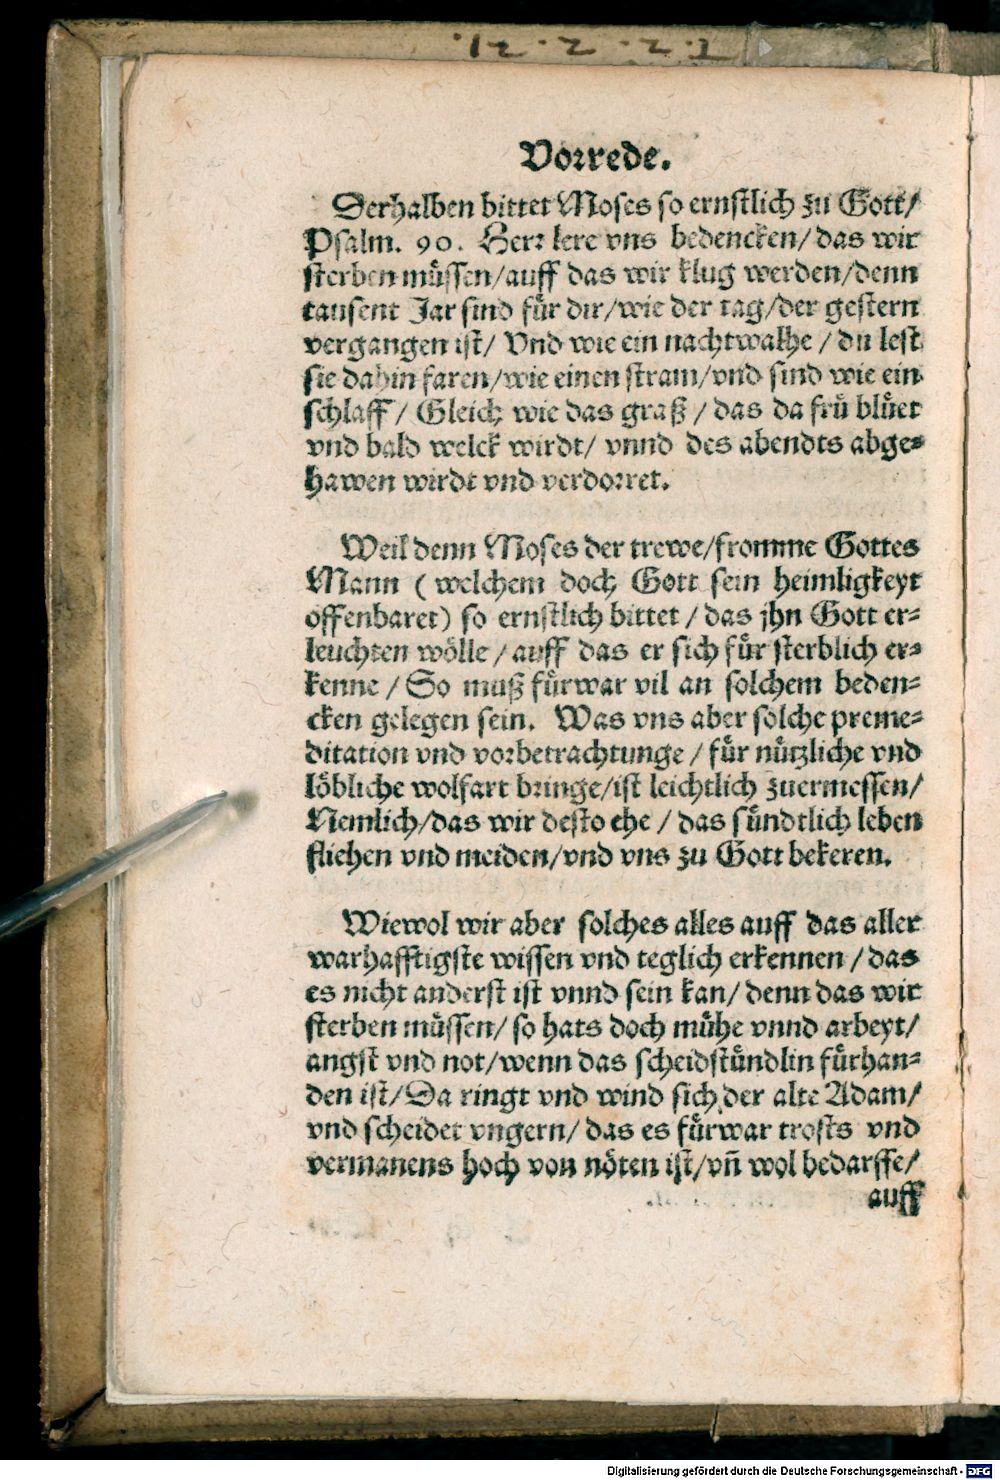 Vorrede.
Derhalben bittet Moses so ernstlich zu Gott/
Psalm. 90. Herr lere vns bedencken/das wir
sterben müssen/auff das wir klug werden/denn
tausent Jar sind für dir/wie der tag/der gestern
vergangen ist/ Vnd wie ein nachtwalhe / du lest
sie dahin faren/wie einen stram/vnd sind wie ein
schlaff/ Gleich wie das graß / das da frü blüet
vnd bald welck wirdt/ vnnd des abendts abge-
hawen wirdt vnd verdorret.
Weil denn Moses der trewe/fromme Gottes
Mann ( welchem doch Gott sein heimligkeyt
offenbaret) so ernstlich bittet / das jhn Gott er-
leuchten wölle / auff das er sich für sterblich er-
kenne / So muß fürwar vil an solchem beden-
cken gelegen sein. Was vns aber solche preme-
ditation vnd vorbetrachtunge / für nützliche vnd
löbliche wolfart bringe/ist leichtlich zuermessen/
Nemlich/das wir desto ehe / das sündtlich leben
fliehen vnd meiden/vnd vns zu Gott bekeren.
Wiewol wir aber solches alles auff das aller
warhafftigste wissen vnd teglich erkennen / das
es nicht anderst ist vnnd sein kan/ denn das wir
sterben müssen/ so hats doch mühe vnnd arbeyt/
angst vnd not/wenn das scheidstündlin fürhan-
den ist/Da ringt vnd wind sich der alte Adam/
vnd scheidet vngern/ das es fürwar trosts vnd
vermanens hoch von nöten ist/vñ wol bedarffe/
auff
Digitalisierung gefördert durch die Deutsche Forschungsgemeinschaft - DFG